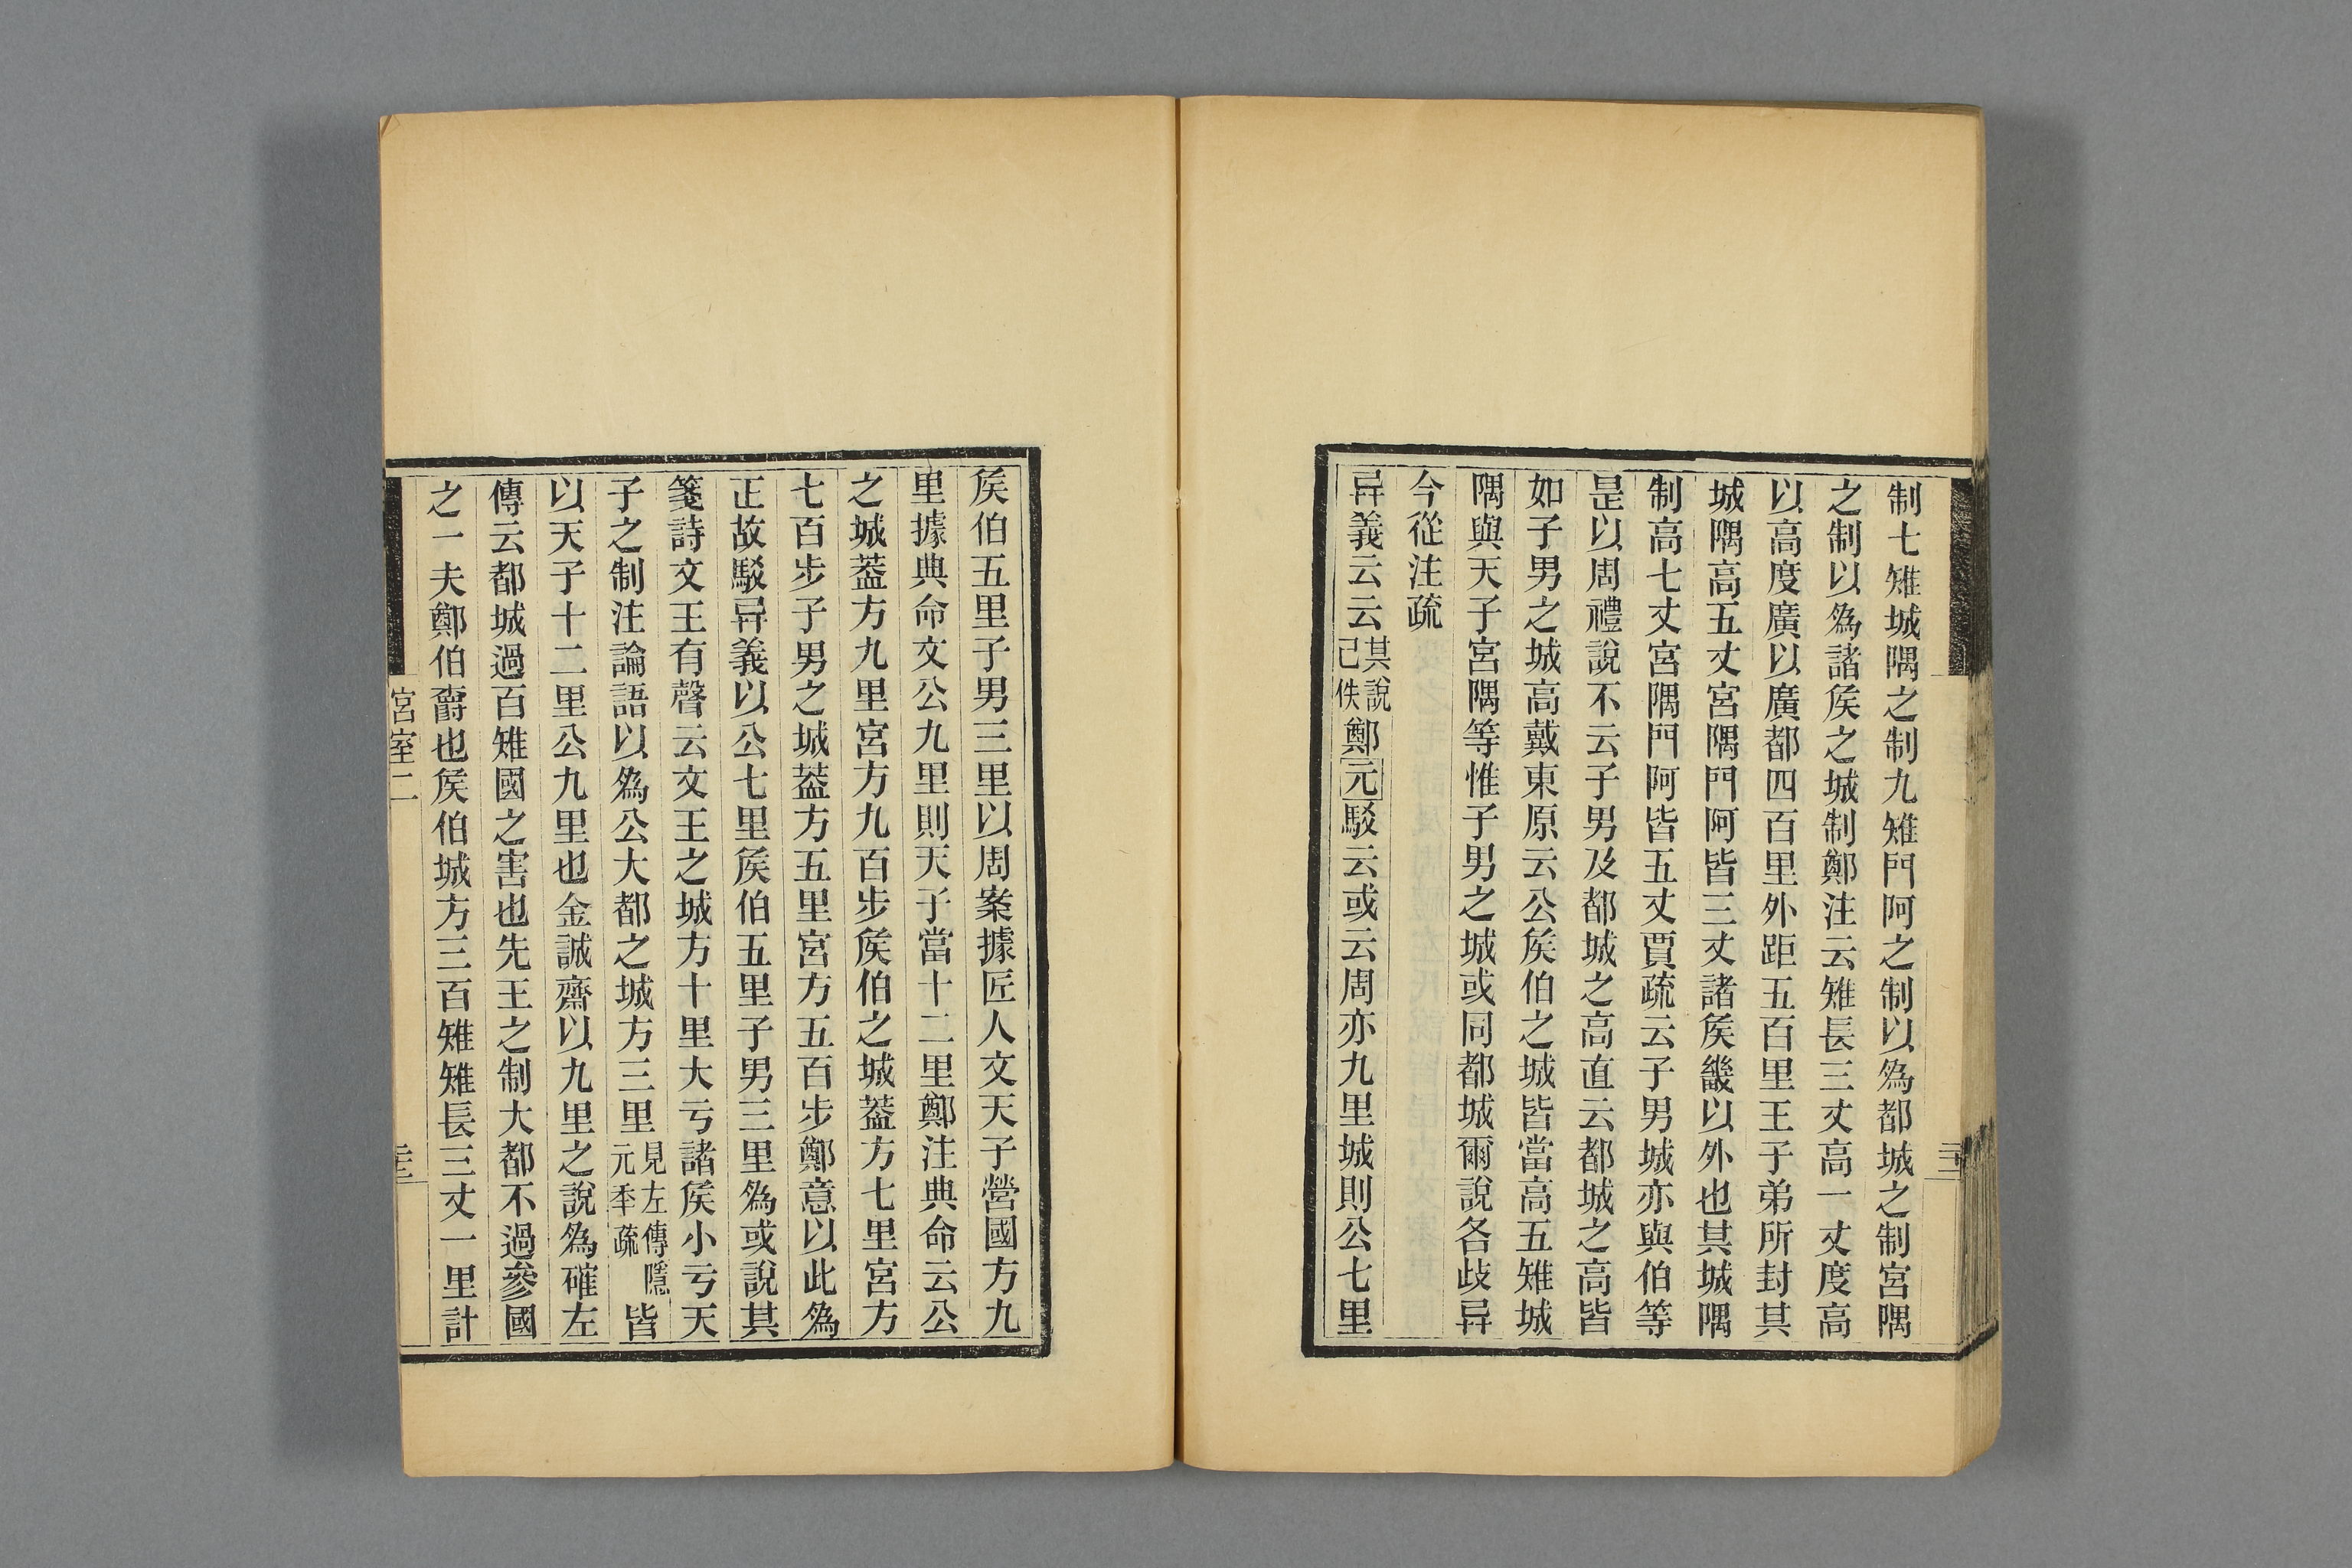 制七雉城隅之制九雉門阿之制以爲都城之制宮隅
之制以爲諸矦之城制鄭注云雉長三丈高一丈度高
以高度廣以廣都四百里外距五百里王子弟所封其
城隅高五丈宮隅門阿皆三丈諸矦畿以外也其城隅
制高七丈宮隅門阿皆五丈賈疏云子男城亦與伯等
是以周禮說不云子男及都城之高直云都城之高皆
如子男之城高戴東原云公矦伯之城皆當高五雉城
隅與天子宮隅等惟子男之城或同都城爾說各歧异
今從注疏
异義云云其說已佚鄭元駁云或云周亦九里城則公七里
矦伯五里子男三里以周案據匠人文天子營國方九
里據典命文公九里則天子當十二里鄭注典命云公
之城葢方九里宮方九百步矦伯之城葢方七里宮方
七百步子男之城葢方五里宮方五百步鄭意以此爲
正故駁异義以公七里矦伯五里子男三里爲或說其
箋詩文王有聲云文王之城方十里大亏諸矦小亏天
子之制注論語以爲公大都之城方三里見左傳隱元年疏皆
以天子十二里公九里也金誠齋以九里之說爲確左
傳云都城過百雉國之害也先王之制大都不過參國
之一夫鄭伯爵也矦伯城方三百雉雉長三丈一里計
宮室二